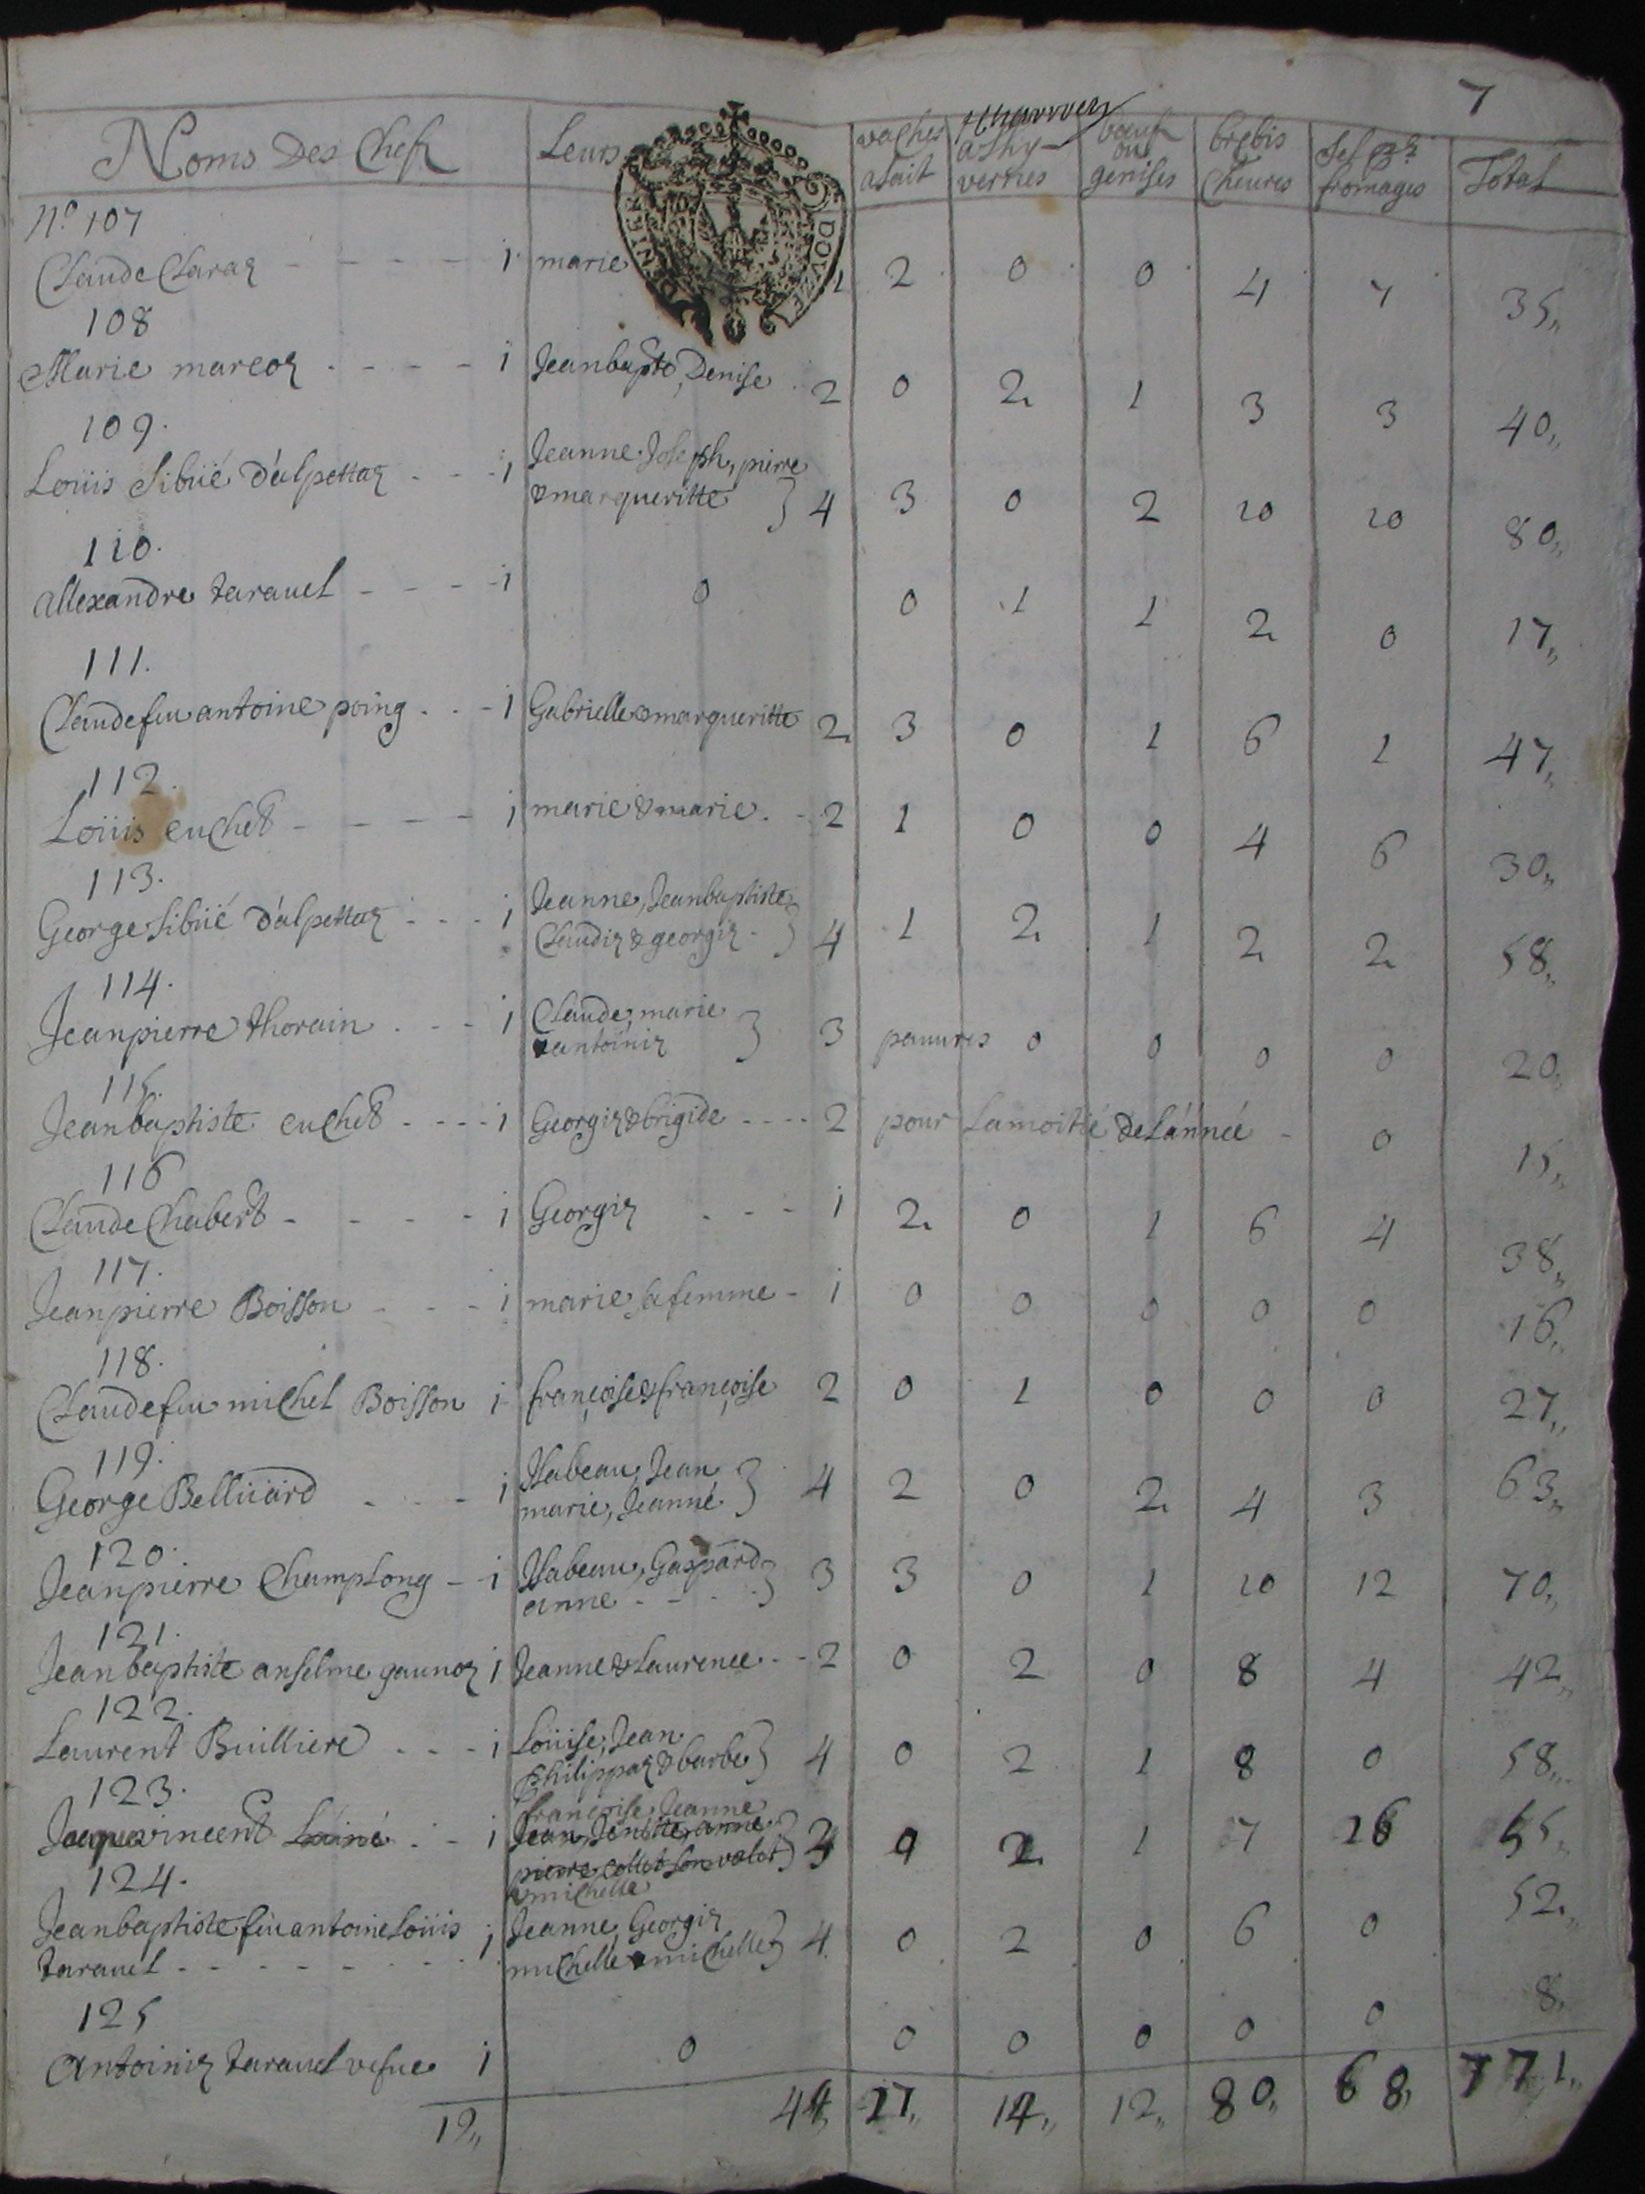 7
Noms Des Chefz Leurs vaches alait a shy-vernes bœufs ou genises brebis Cheures Sel pr fromages Total
N.º 107
Claude Claraz - - - - 1 marie 1 2 0 0 4 7 35,,
108
Marie marcoz - - - - 1 Jeanbapte, Denise 2 0 2 1 3 3 40,,
109.
Loüis Sibüé d'alpettaz - - - 1 Jeanne, Joseph, pierre
& margueritte } 4 3 0 2 10 10 80,,
110.
allexandre taravel - - - - 1 0 0 1 1 2 0 17,,
111.
Claude feu antoine poing - - - 1 Gabrielle & margueritte 2 3 0 1 6 1 47,,
112.
Loüis cuchet - - - - 1 marie & marie - - 2 1 0 0 4 6 30,,
113.
George Sibüé d'alpettaz - - - 1 Jeanne, Jeanbaptiste
Claudiz & georgiz - } 4 1 2 1 2 2 58,,
114.
Jeanpierre thorain - - - 1 Claude, marie
& antoiniz } 3 pauures 0 0 0 0 20,,
115.
Jeanbaptiste cuchet - - - - 1 Georgiz & brigide - - - - 2 pour la moitié de l'année - 0 15,,
116
Claude Chabert - - - - 1 Georgiz - - - 1 2 0 1 6 4 38,,
117.
Jeanpierre Boisson - - - 1 marie sa femme - 1 0 0 0 0 0 16,,
118.
Claude feu michel Boisson 1 françoise & françoise 2 0 1 0 0 0 27,,
119.
George Belluard - - - 1 Isabeau, Jean
marie, Jeanne } 4 2 0 2 4 3 63,,
120.
Jeanpierre Champlong - 1 Isabeau, Gaspard
anne - - - } 3 3 0 1 10 12 70,,
121.
Jeanbaptiste anselme gaunoz 1 Jeanne & Laurence - - 2 0 2 0 8 4 42,,
122.
Laurent Buillliere - - - 1 Loüise, Jean
philippaz & barbe } 4 0 2 1 8 0 58,,
123.
vincent - - 1 françoise, Jeanne
Jean, anne
pierre collet son valet }
& michelle 2 1 7 55,,
124.
Jeanbaptiste feu antoine Loüis
taravel - - - - - - 1 Jeanne, Georgiz
michelle & michelle } 4 0 2 0 6 0 52,,
125
Antoiniz taravel vefue 1 0 0 0 0 0 0 8,,
19,, 44,, 21,, 14,, 12,, 80,, 68,, 771,,